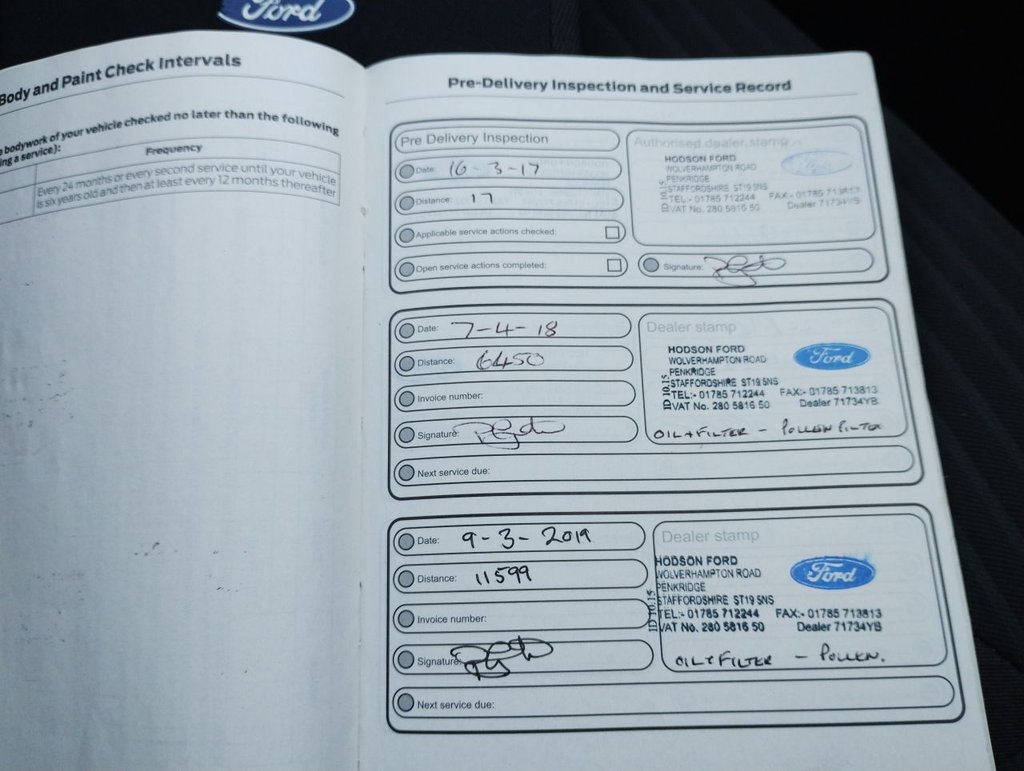 Ford
Body and Paint Check Intervals
bodywork of your vehicle checked no later than the following
ing a service):
Frequency
Every 24 months or every second service until your vehicle
is six years old and then at least every 12 months thereafter
Pre-Delivery Inspection and Service Record
Pre Delivery Inspection
Date: 16-3-17
Distance: 17
Applicable service actions checked:
Open service actions completed:
Authorised dealer stamp
Ford
HODSON FORD
WOLVERHAMPTON ROAD
PENKRIDGE
STAFFORDSHIRE ST19 5NS
TEL:- 01785 712244 FAX:- 01785 713813
VAT No. 280 5816 50 Dealer 71734YB
ID 10.15
Signature:
Date: 7-4-18
Distance: 6450
Invoice number:
Signature:
Next service due:
Dealer stamp
Ford
HODSON FORD
WOLVERHAMPTON ROAD
PENKRIDGE
STAFFORDSHIRE ST19 5NS
TEL:- 01785 712244 FAX:- 01785 713813
VAT No. 280 5816 50 Dealer 71734YB
ID 10.15
OIL+FILTER - POLLEN FILTER
Date: 9-3-2019
Distance: 11599
Invoice number:
Signature:
Next service due:
Dealer stamp
Ford
HODSON FORD
WOLVERHAMPTON ROAD
PENKRIDGE
STAFFORDSHIRE ST19 5NS
TEL:- 01785 712244 FAX:- 01785 713813
VAT No. 280 5816 50 Dealer 71734YB
ID 10.15
OIL+FILTER - POLLEN.